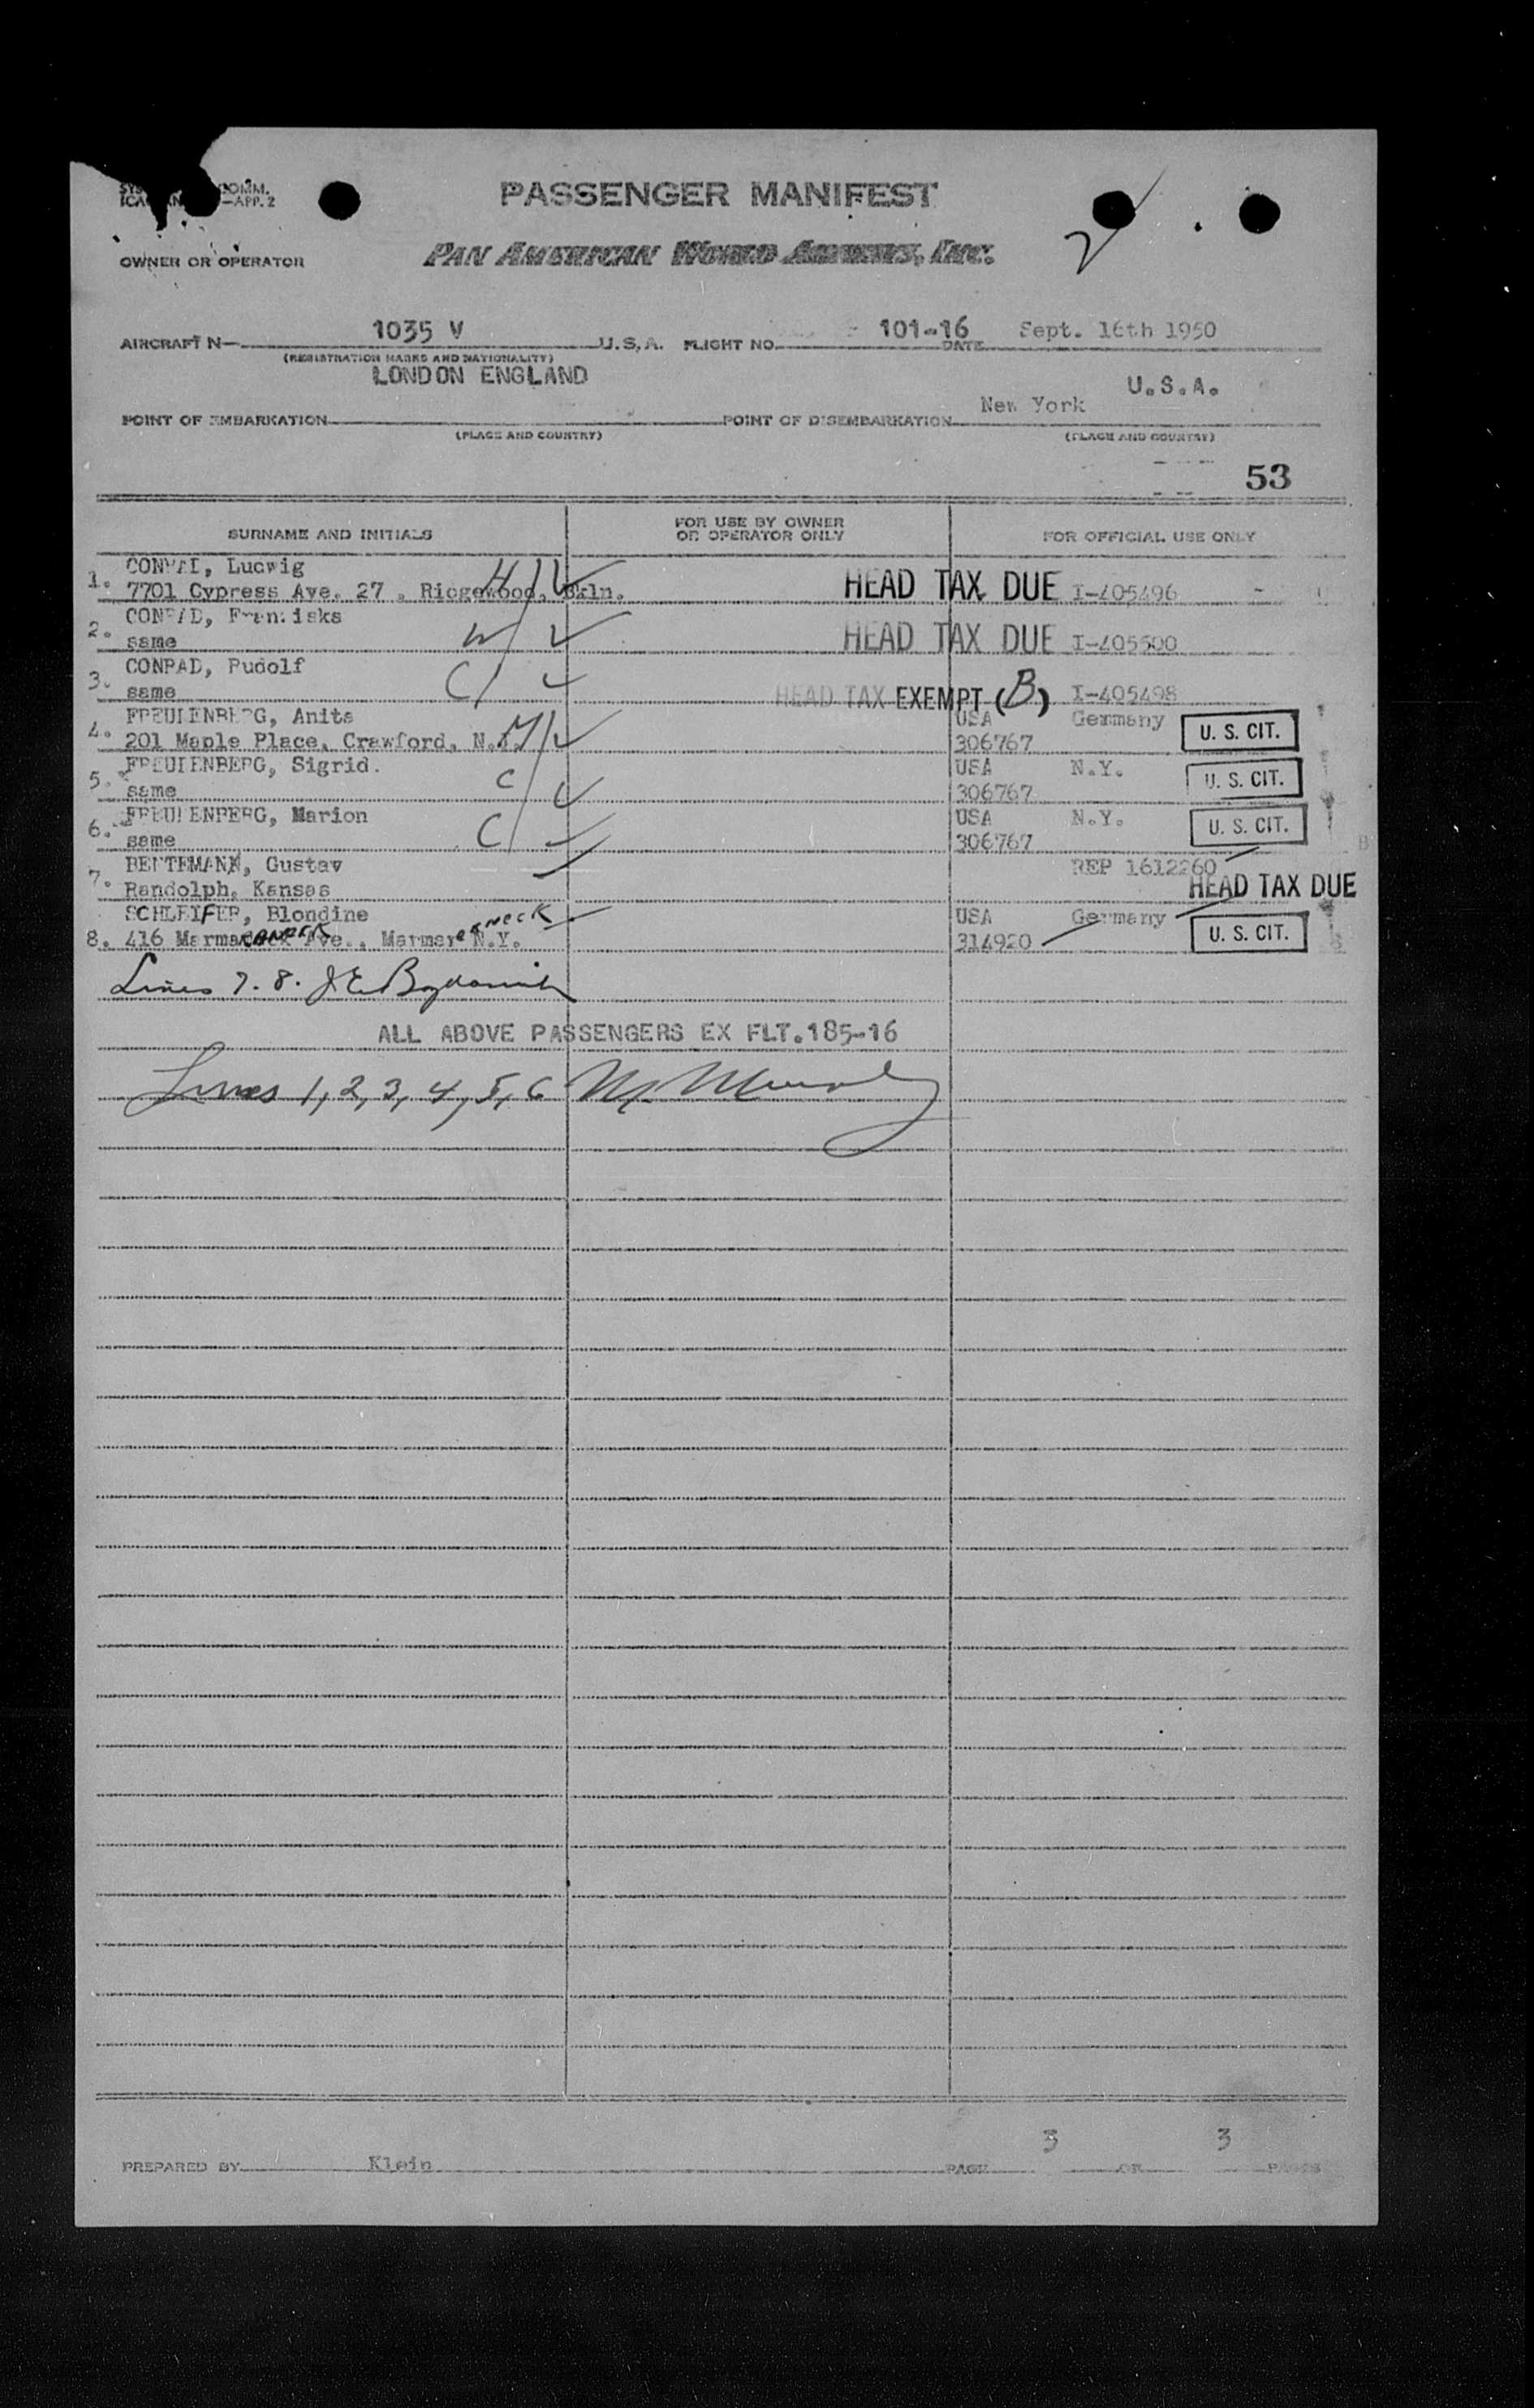 PASSENGER MANIFEST
COMM.
—APP. 2
OWNER OR OPERATOR PAN AMERICAN WORLD AIRWAYS, INC.
AIRCRAFT N— 1035 V U.S.A. FLIGHT NO. 101-16 DATE Sept. 16th 1950
(REGISTRATION MARKS AND NATIONALITY)
LONDON ENGLAND
U.S.A.
New York
POINT OF EMBARKATION POINT OF DISEMBARKATION
(PLACE AND COUNTRY) (PLACE AND COUNTRY)
53
SURNAME AND INITIALS FOR USE BY OWNER OR OPERATOR ONLY FOR OFFICIAL USE ONLY
CONRAD, Ludwig
1. 7701 Cypress Ave. 27 , Ridgewood, Bkln. HEAD TAX DUE I-405496
CONRAD, Franziska
2. same W HEAD TAX DUE I-405500
CONRAD, Rudolf
3. same C HEAD TAX EXEMPT (B) I-405498
FREUDENBERG, Anita USA Germany
4. 201 Maple Place, Crawford, N.J. 306767 U. S. CIT.
FREUDENBERG, Sigrid. C USA N.Y.
5. same 306767 U. S. CIT.
FREUDENBERG, Marion USA N.Y.
6. same C 306767 U. S. CIT.
Gustav REP 1612260
7. Randolph, Kansas HEAD TAX DUE
SCHLEIFER, Blondine ERNECK USA Germany
8. 416 Ave., N.Y. 314920 U. S. CIT.
Lines 7. 8. J E
ALL ABOVE PASSENGERS EX FLT.185-16
Lines 1, 2, 3, 4, 5, 6
3 3
PREPARED BY Klein PAGE OF PAGES